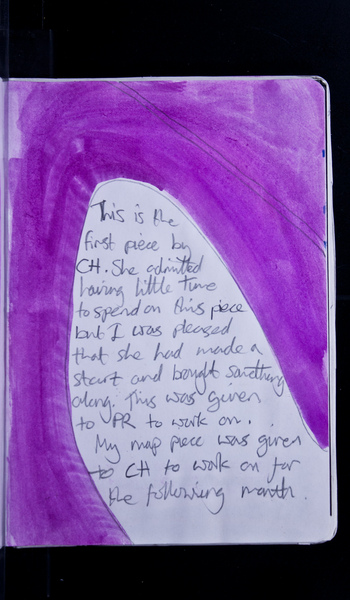 This is the
first piece by
CH. She admitted
having little time
to spend on this piece
but I was pleased
that she had made a
start and bought something
along. This was given
to PR to work on.
My map piece was given
to CH to work on for
the following month.